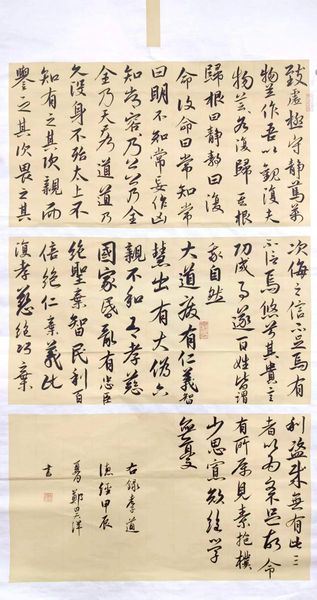 致虛極守靜篤萬
物並作吾以觀復夫
物芸芸各復歸其根
歸根曰靜靜曰復
命復命曰常知常
曰明不知常妄作凶
知常容容乃公公乃全
全乃天天乃道道乃
久沒身不殆太上不
知有之其次親而
譽之其次畏之其
次侮之信不足焉有
不信焉悠兮其貴言
功成事遂百姓皆謂
我自然
大道廢有仁義智
慧出有大偽六
親不和有孝慈
國家昏亂有忠臣
絕聖棄智民利百
倍絕仁棄義民
復孝慈絕巧棄
利盜賊無有此三
者以為文不足故令
有所屬見素抱樸
少思寡欲絕學
無憂
右錄道
德經甲辰
夏鄭洋
書